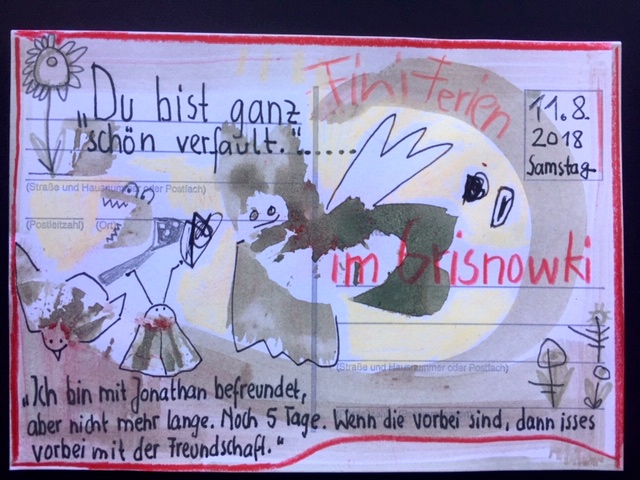 Finiferien
„Du bist ganz
schön verfault.".....
11.8.
2018
Samstag
(Straße und Hausnummer oder Postfach)
(Postleitzahl) (Ort)
im Grisnowki
(Straße und Hausnummer oder Postfach)
„Ich bin mit Jonathan befreundet,
aber nicht mehr lange. Noch 5 Tage. Wenn die vorbei sind, dann isses
vorbei mit der Freundschaft."